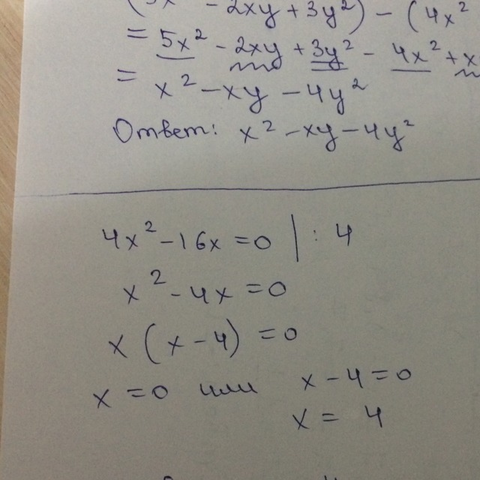 (5x² - 2xy + 3y²) - (4x²
= 5x² - 2xy + 3y² - 4x² + x
= x² - xy - 4y²
Ответ: x² - xy - 4y²
4x² - 16x = 0 | : 4
x² - 4x = 0
x (x - 4) = 0
x = 0 или x - 4 = 0
x = 4